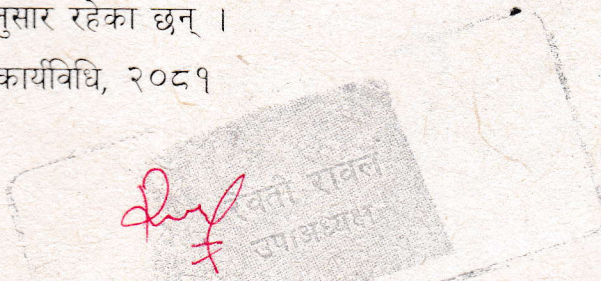 नुसार रहेका छन् ।
कार्यविधि, २०८१
रेवती रावल
उपाध्यक्ष